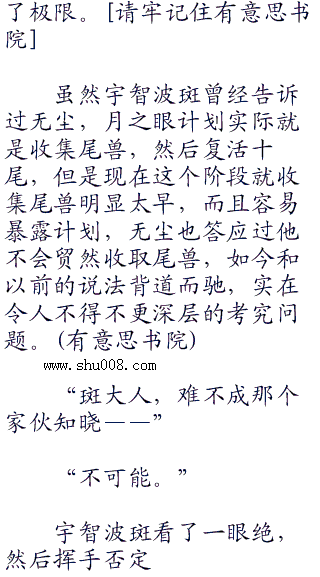 了极限。[请牢记住有意思书
院]
虽然宇智波斑曾经告诉
过无尘，月之眼计划实际就
是收集尾兽，然后复活十
尾，但是现在这个阶段就收
集尾兽明显太早，而且容易
暴露计划，无尘也答应过他
不会贸然收取尾兽，如今和
以前的说法背道而驰，实在
令人不得不更深层的考究问
题。(有意思书院)
www.shu008.com
“斑大人，难不成那个
家伙知晓——”
“不可能。”
宇智波斑看了一眼绝，
然后挥手否定